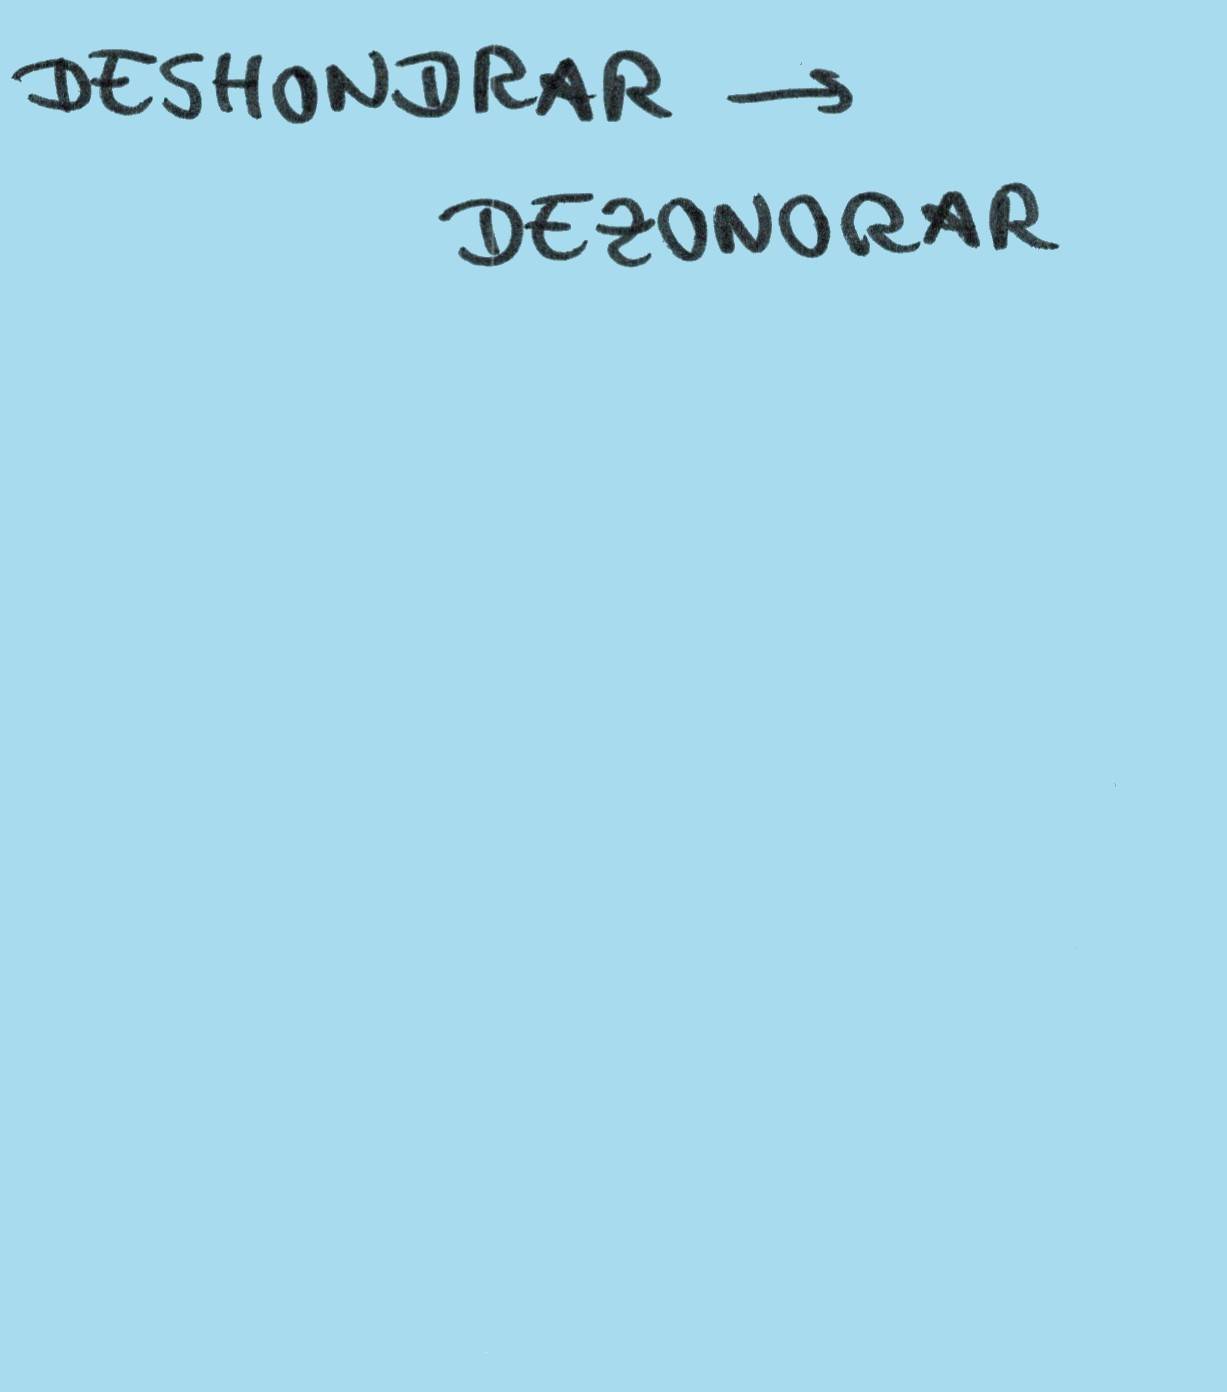 DESHONDRAR →
DEZONORAR